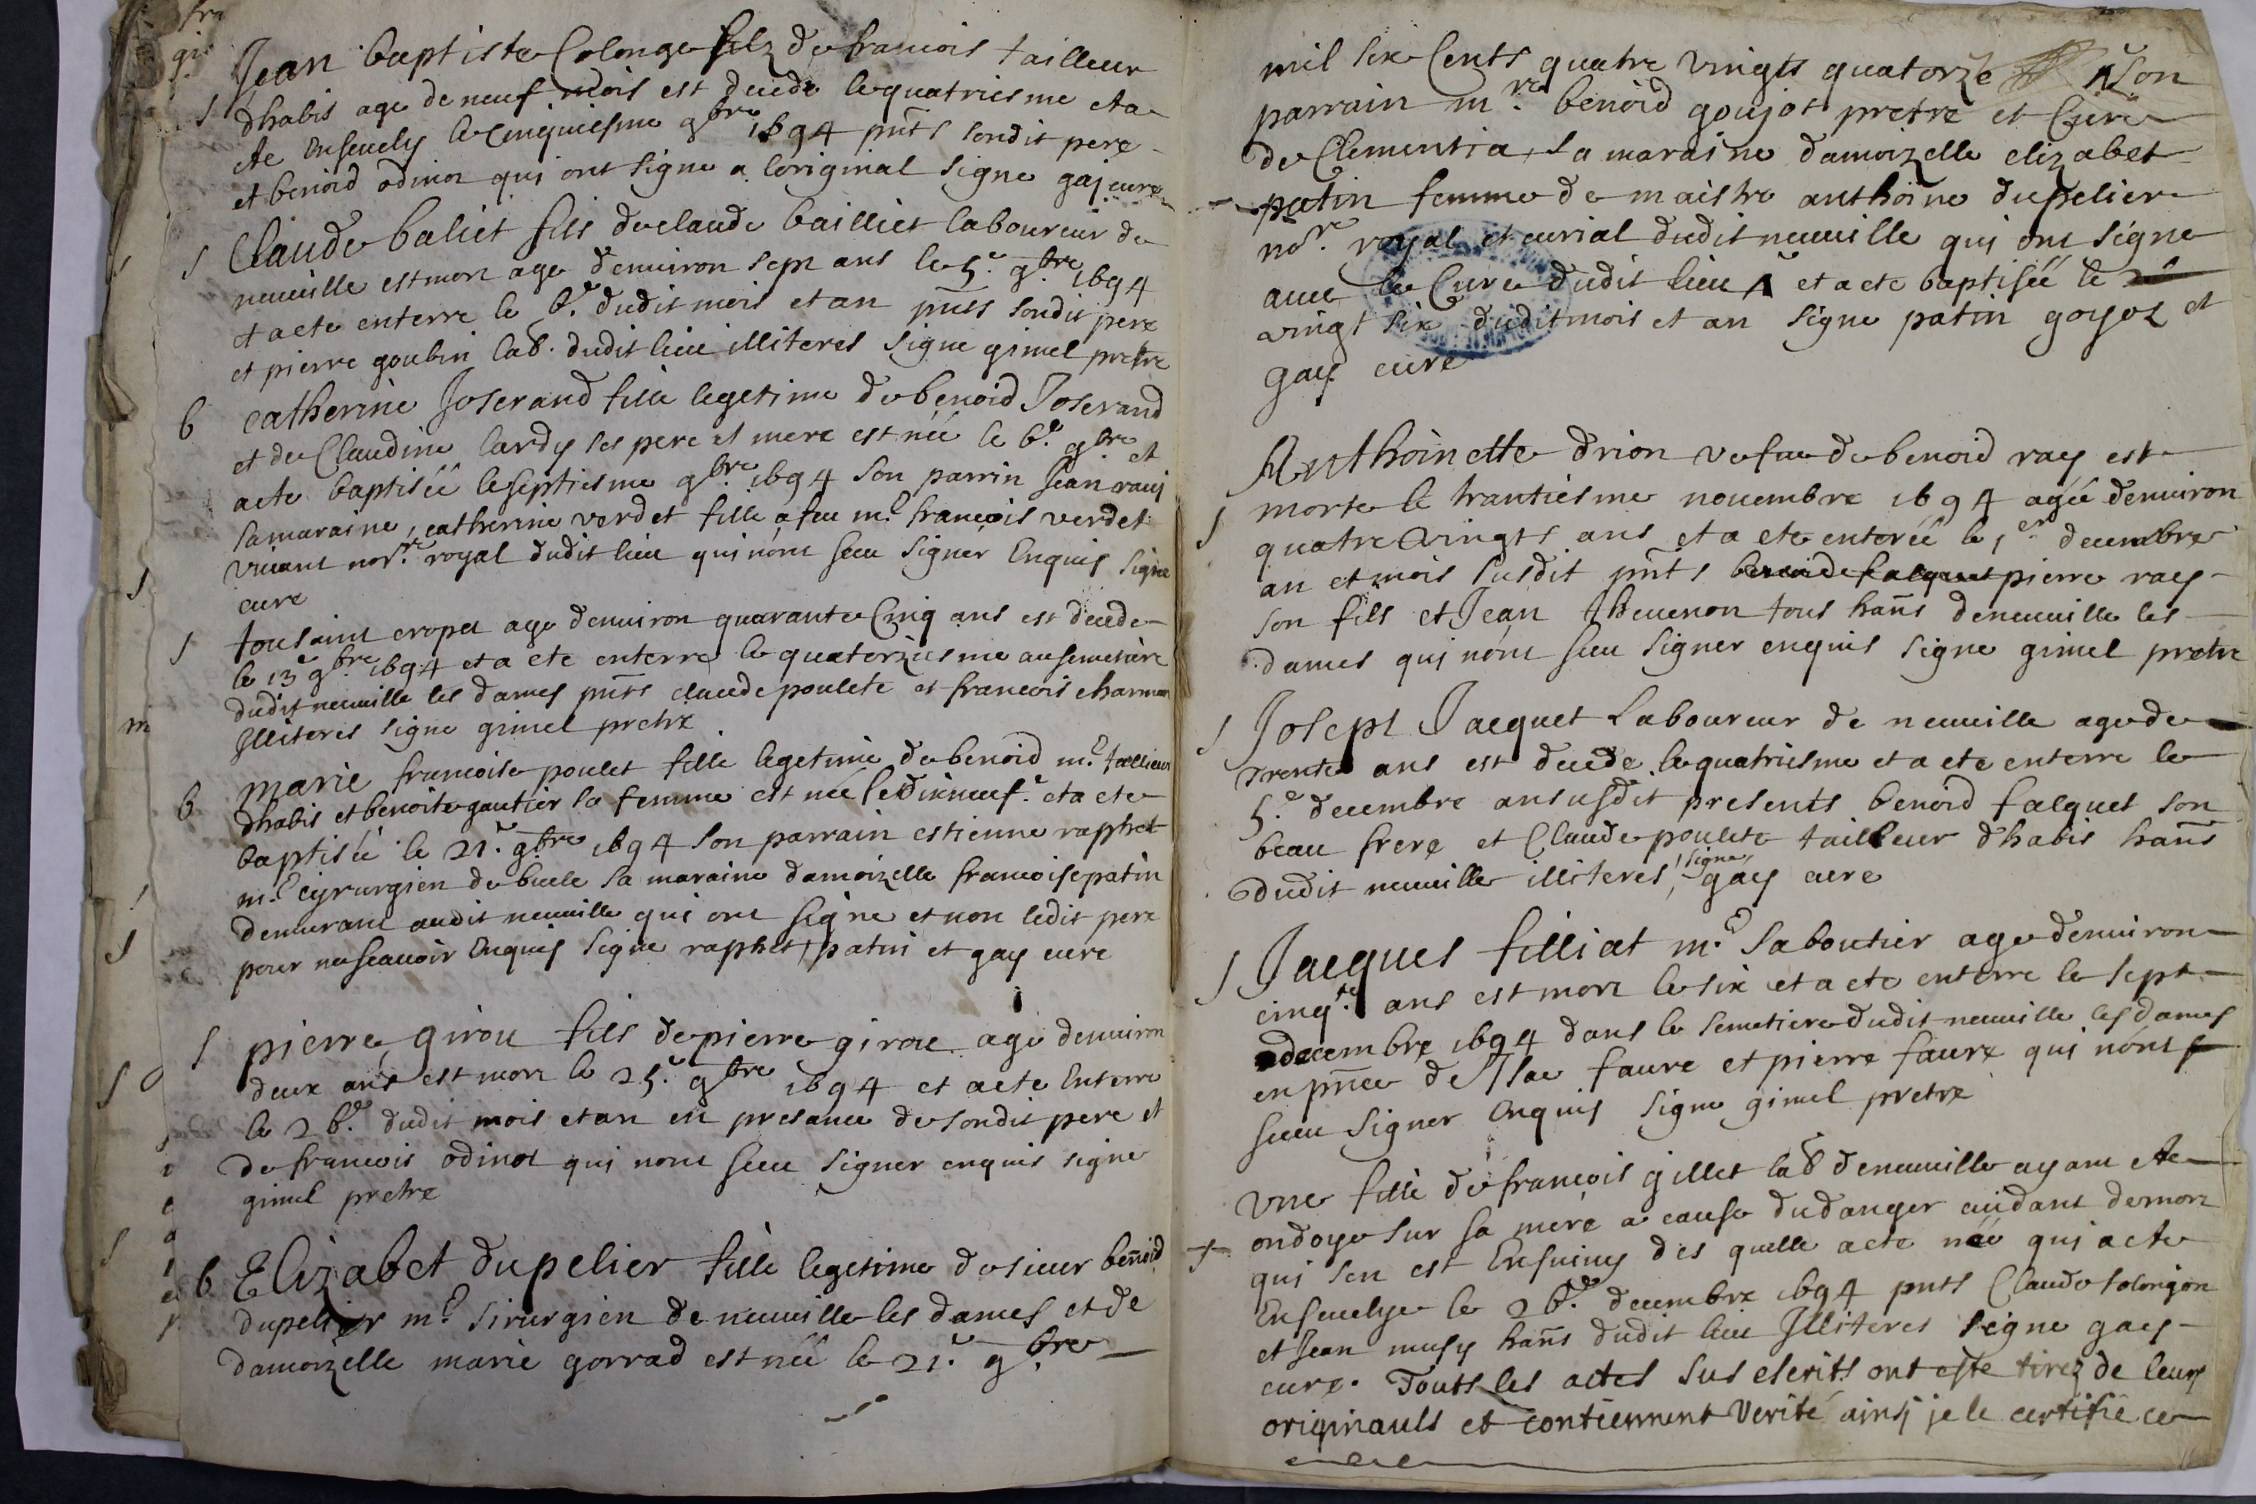 Jean baptiste Colonge filz de francois tailleur
S dhabis age de neuf mois est decede le quatriesme et a
ete ensevely le cinquiesme gbre 1694 pnts sondit pere
et benoid odinot qui ont signe a loriginal signe gaj cure
S Claude baliet fils de claude bailliet laboureur de
neuville est mort age denviron sept ans le 5e gbre 1694
et a ete enterre le 6e dudit mois et an pnts sondit pere
et pierre goubin lab. dudit lieu illiteres signe gimel pretre
b catherine Joserand fille legetime de benoid Joserand
et de Claudine lardy ses pere et mere est née le 6e gbre et
a ete baptisée le septiesme gbre 1694 son parrin Jean
sa maraine catherine verdet fille a feu me francois verdet
vivant norre royal dudit lieu qui nont sceu signer Enquis signe
cure
S tousaint cropet age denviron quarante Cinq ans est decede
le 13e gbre 1694 et a ete enterre le quatorziesme au semetiere
dudit neuville les dames pnts claude poulete et francois
Illiteres signe gimel pretre
b marie francoise poulet fille legetime de benoid me tallieur
dhabis et benoite gautier sa femme est née le Dixneufe et a ete
baptisée le 21e gbre 1694 son parrain estienne raphet
me cyrurgien de bucle sa maraine damoizelle francoise patin
demurant audit neuville qui ont signe et non ledit pere
pour ne scavoir Enquis signe raphet, patin et gay cure
S pierre girou fils de pierre girou age denviron
deux ans est mort le 25e gbre 1694 et a ete Enterre
le 26e dudit mois et an en presance de sondit pere et
de francois odinot qui nont sceu signer enquis signe
gimel pretre
b Elizabet dupelier fille legetime de sieur benoid
dupelier me sirurgien de neuville les dames et de
damoizelle marie gorrad est née le 21e gbre
mil six Cents quatre vingts quatorze son
parrain mre benoid goujot pretre et Cure
de Clementia, sa maraine damoizelle elizabet
patin femme de maistre anthoine dupelier
nore royal et curial dudit neuville qui ont signe
avec le Cure dudit lieu et a ete baptisée le
vingt six dudit mois et an signe patin goyot et
gay cure
Anthoinette drion vefve de benoid ray est
morte le trantiesme novembre 1694 agée denviron
S quatre vingts ans et a ete enterée le 1er decembre
an et mois susdit pnts benoid falquet pierre ray
son fils et Jean thevenon tous hans de neuville les
dames qui nont sceu signer enquis signe gimel pretre
S Josept Jacquet Laboureur de neuville age de
trente ans est decede le quatriesme et a ete enterre le
5e decembre an susdit presents benoid falquet son
beau frere et Claude poulete tailleur dhabis hans
dudit neuville illiteres, signe, gay cure
S Jacques filliat me saboutier age denviron
cinqte ans est mort le six et a ete enterre le sept
decembre 1694 dans le semetiere dudit neuville les dames
en pnce de Isac faure et pierre faure qui nont
sceu signer Enquis signe gimel pretre
une fille de francois gillet lab de neuville ayant ete
ondoye sur sa mere a cause du danger evidant de mort
qui sen est Ensuivy des quelle a ete née qui a ete
Ensevelye le 26e decembre 1694 pnts Claude solongon
et Jean musy hans dudit lieu Illiteres signe gay
cure. Touts les actes sus escrits ont este tirez de leurs
originauls et contiennent verité ainsj je le certifie ce